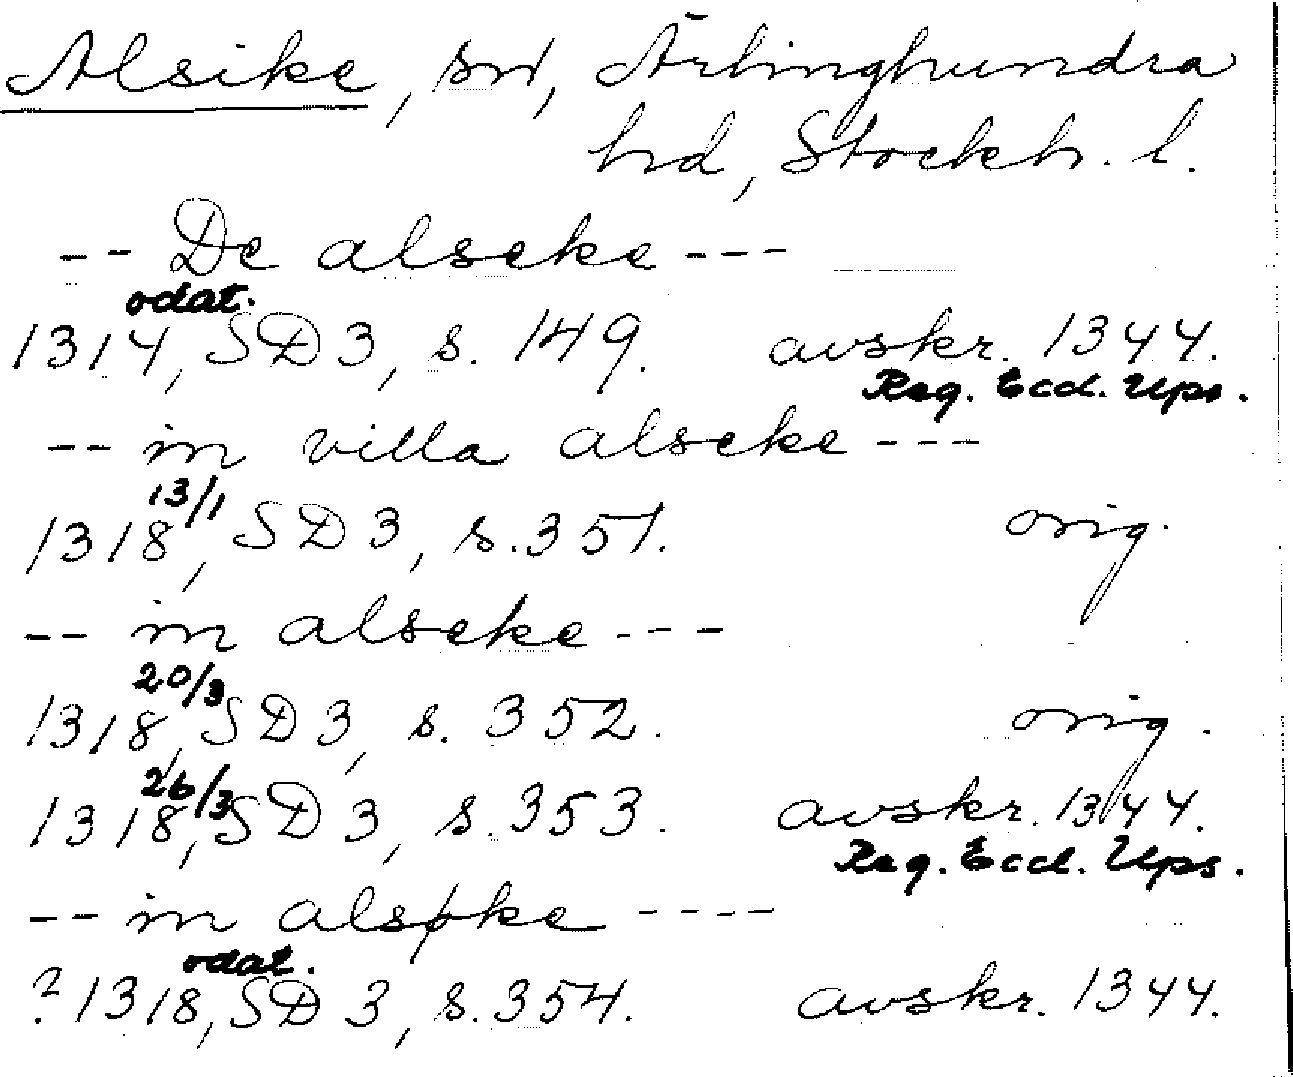 Alsike, sn, Ärlinghundra
hd, Stockh. l.
-- De alseke ---
odat.
1314, SD 3, s. 149. avskr. 1344.
Reg. Eccl. Ups.
-- in villa alseke ---
13/1
1318, SD 3, s. 351. orig.
-- in alseke ---
20/3
1318, SD 3, s. 352. orig.
26/3
1318, SD 3, s. 353. avskr. 1344.
Reg. Eccl. Ups.
-- in alsøke ----
odat.
? 1318, SD 3, s. 354. avskr. 1344.